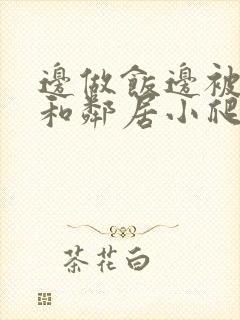 邊做飯邊被
和鄰居小爬
茶花白